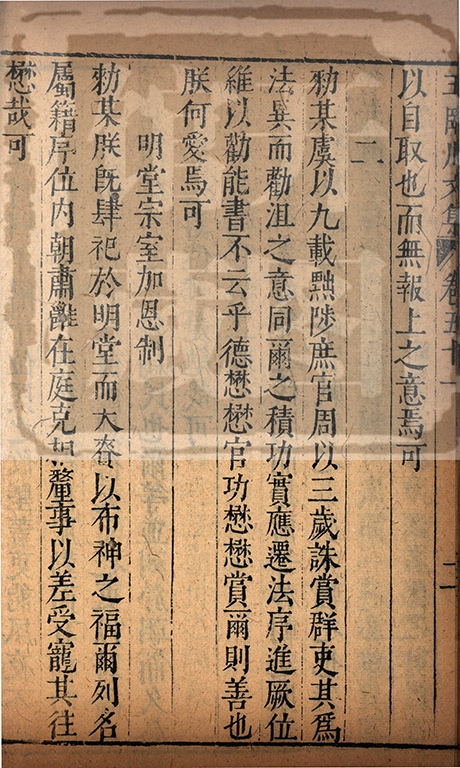 王臨川文集 卷五十一 二
以自取也而無報上之意焉可
二
勑某虞以九載黜陟庶官周以三歲誅賞群吏其爲
法異而勸沮之意同爾之積功實應遷法序進厥位
維以勸能書不云乎德懋懋官功懋懋賞爾則善也
朕何愛焉可
明堂宗室加恩制
勑某朕旣肆祀於明堂而大賚以布神之福爾列名
屬籍序位內朝肅雝在庭克相釐事以差受寵其往
懋哉可